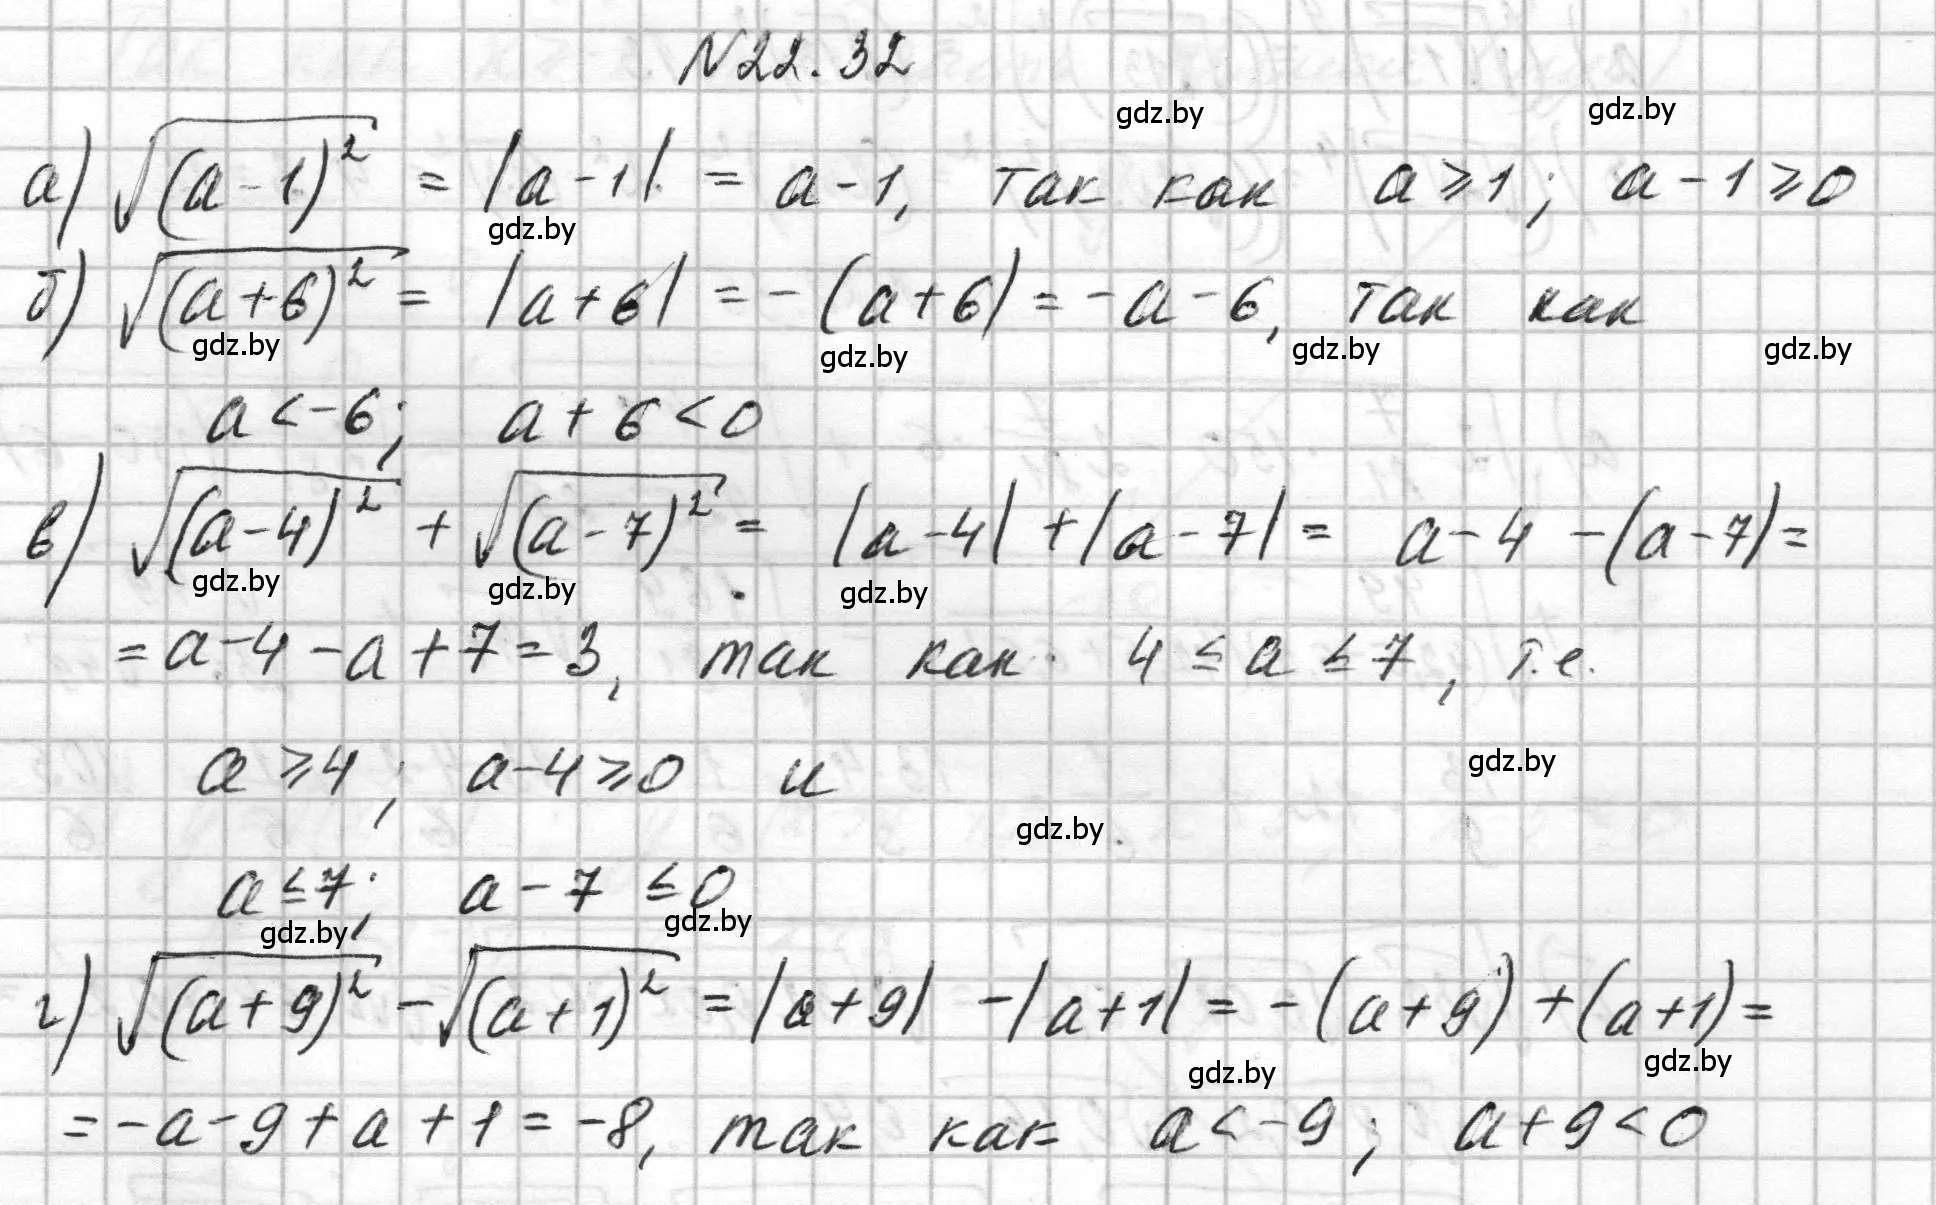 №22.32
gdz.by gdz.by
а) √(a-1)² = |a-1| = a-1, так как a⩾1; a-1⩾0
gdz.by
б) √(a+6)² = |a+6| = -(a+6) = -a-6, так как
gdz.by gdz.by gdz.by gdz.by
a<-6; a+6<0
в) √(a-4)² + √(a-7)² = |a-4| + |a-7| = a-4 -(a-7) =
gdz.by gdz.by gdz.by
= a-4-a+7 = 3, так как 4 ≤ a ≤ 7, т.е.
a⩾4; a-4⩾0 и
gdz.by
gdz.by
a≤7; a-7 ≤0
gdz.by gdz.by
г) √(a+9)² - √(a+1)² = |a+9| -|a+1| = -(a+9) +(a+1) =
gdz.by gdz.by
= -a-9+a+1 = -8, так как a<-9; a+9<0